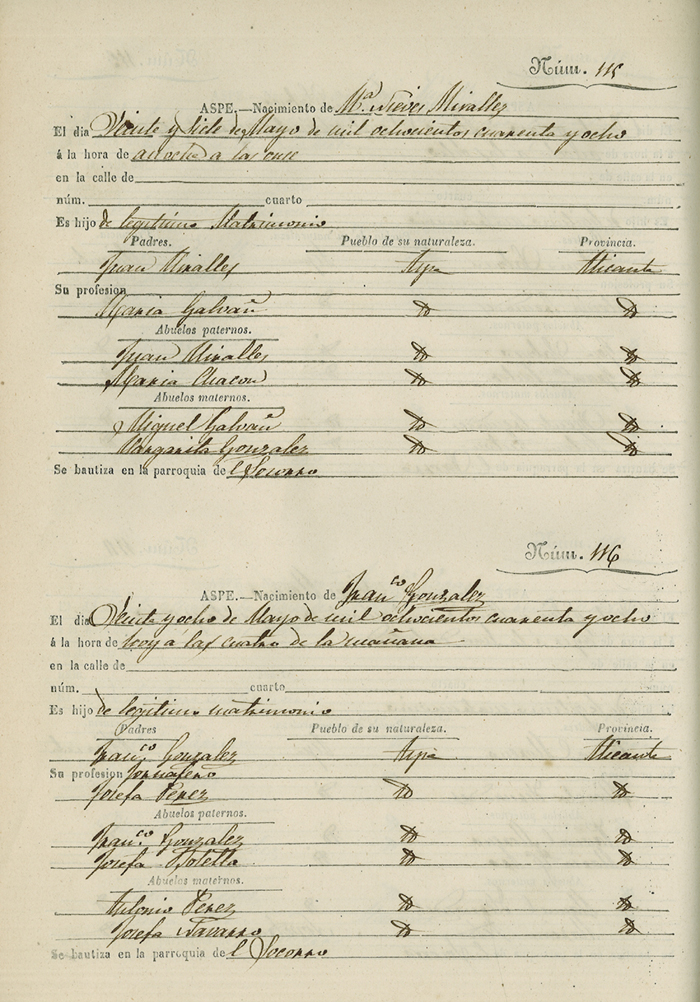 Núm. 115
ASPE.—Nacimiento de Mª Nieves Miralles
El dia Veinte y siete de Mayo de mil ochocientos cuarenta y ocho
á la hora de anoche a las once
en la calle de
núm. cuarto
Es hijo de legitimo Matrimonio
Padres. Pueblo de su naturaleza. Provincia.
Juan Miralles Aspe Alicante
Su profesion
Maria Galvañ Do Do
Abuelos paternos.
Juan Miralles Do Do
Maria Chacon Do Do
Abuelos maternos.
Miguel Galvañ Do Do
Margarita Gonzalez Do Do
Se bautiza en la parroquia de l Socorro
Núm. 116
ASPE.—Nacimiento de Franco Gonzalez
El dia Veinte y ocho de Mayo de mil ochocientos cuarenta y ocho
á la hora de hoy a las cuatro de la mañana
en la calle de
núm. cuarto
Es hijo de legitimo matrimonio
Padres Pueblo de su naturaleza. Provincia.
Franco Gonzalez Aspe Alicante
Su profesion Jornalero
Josefa Perez Do Do
Abuelos paternos.
Franco Gonzalez Do Do
Josefa Botella Do Do
Abuelos maternos.
Antonio Perez Do Do
Josefa Navarro Do Do
Se bautiza en la parroquia de l Socorro